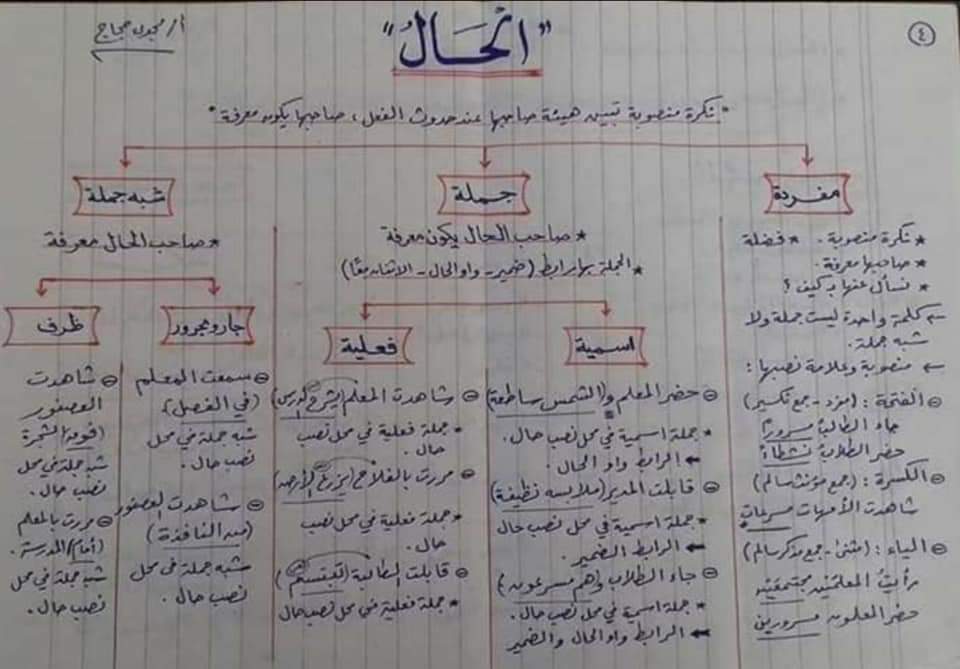 ٤
أ/ مجدى حجاج
"الحَالُ"
"نكرة منصوبة تبين هيئة صاحبها عند حدوث الفعل، صاحبها يكون معرفة"
مفردة
* نكرة منصوبة. * فضلة
* صاحبها معرفة.
* نسأل عنها بـ كيف؟
← كلمة واحدة ليست جملة ولا
شبه جملة.
← منصوبة وعلامة نصبها:
⊖ الفتحة: (مفرد - جمع تكسير)
جاء الطالبُ مسرورًا
حضر الطلابُ نشطاءَ
⊖ الكسرة: (جمع مؤنث سالم)
شاهدت الأمهات مسرعات
⊖ الياء: (مثنى - جمع مذكر سالم)
رأيتُ المعلمَين مجتمعَين
حضر المعلمون مسرورين
جملة
* صاحب الحال يكون معرفة
* الجملة بها رابط (ضمير - واو الحال - الاثنان معًا)
اسمية
⊖ حضر المعلم و(الشمس ساطعة)
* جملة اسمية في محل نصب حال.
← الرابط واو الحال.
⊖ قابلت المدير (ملابسه نظيفة)
* جملة اسمية في محل نصب حال
← الرابط الضمير.
⊖ جاء الطلاب (وهم مسرعون)
* جملة اسمية في محل نصب حال.
← الرابط واو الحال والضمير
فعلية
⊖ شاهدت المعلم (يشرح الدرس)
* جملة فعلية في محل نصب
حال.
⊖ مررت بالفلاح (يزرع الأرض)
* جملة فعلية في محل نصب
حال.
⊖ قابلت الطالبة (تبتسم)
* جملة فعلية في محل نصب حال
شبه جملة
* صاحب الحال معرفة
جار ومجرور
⊖ سمعت المعلم
(في الفصل)
شبه جملة في محل
نصب حال.
⊖ شاهدت العصفور
(من النافذة)
شبه جملة في محل
نصب حال.
ظرف
⊖ شاهدت
العصفور
(فوق) الشجرة
شبه جملة في محل
نصب حال.
⊖ مررت بالمعلم
(أمام) المدرسة.
شبه جملة في محل
نصب حال.